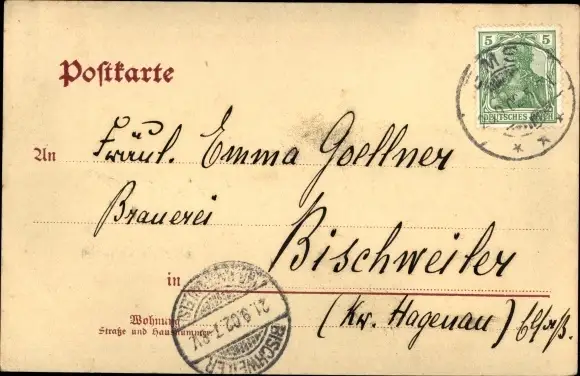 Postkarte
5 5
DEUTSCHES REICH
An Fräul. Emma Goellner
Brauerei
in Bischweiler
Wohnung
Straße und Hausnummer
(Kr. Hagenau) Elsaß.
BISCHWEILER
21.9.02.7-8V.